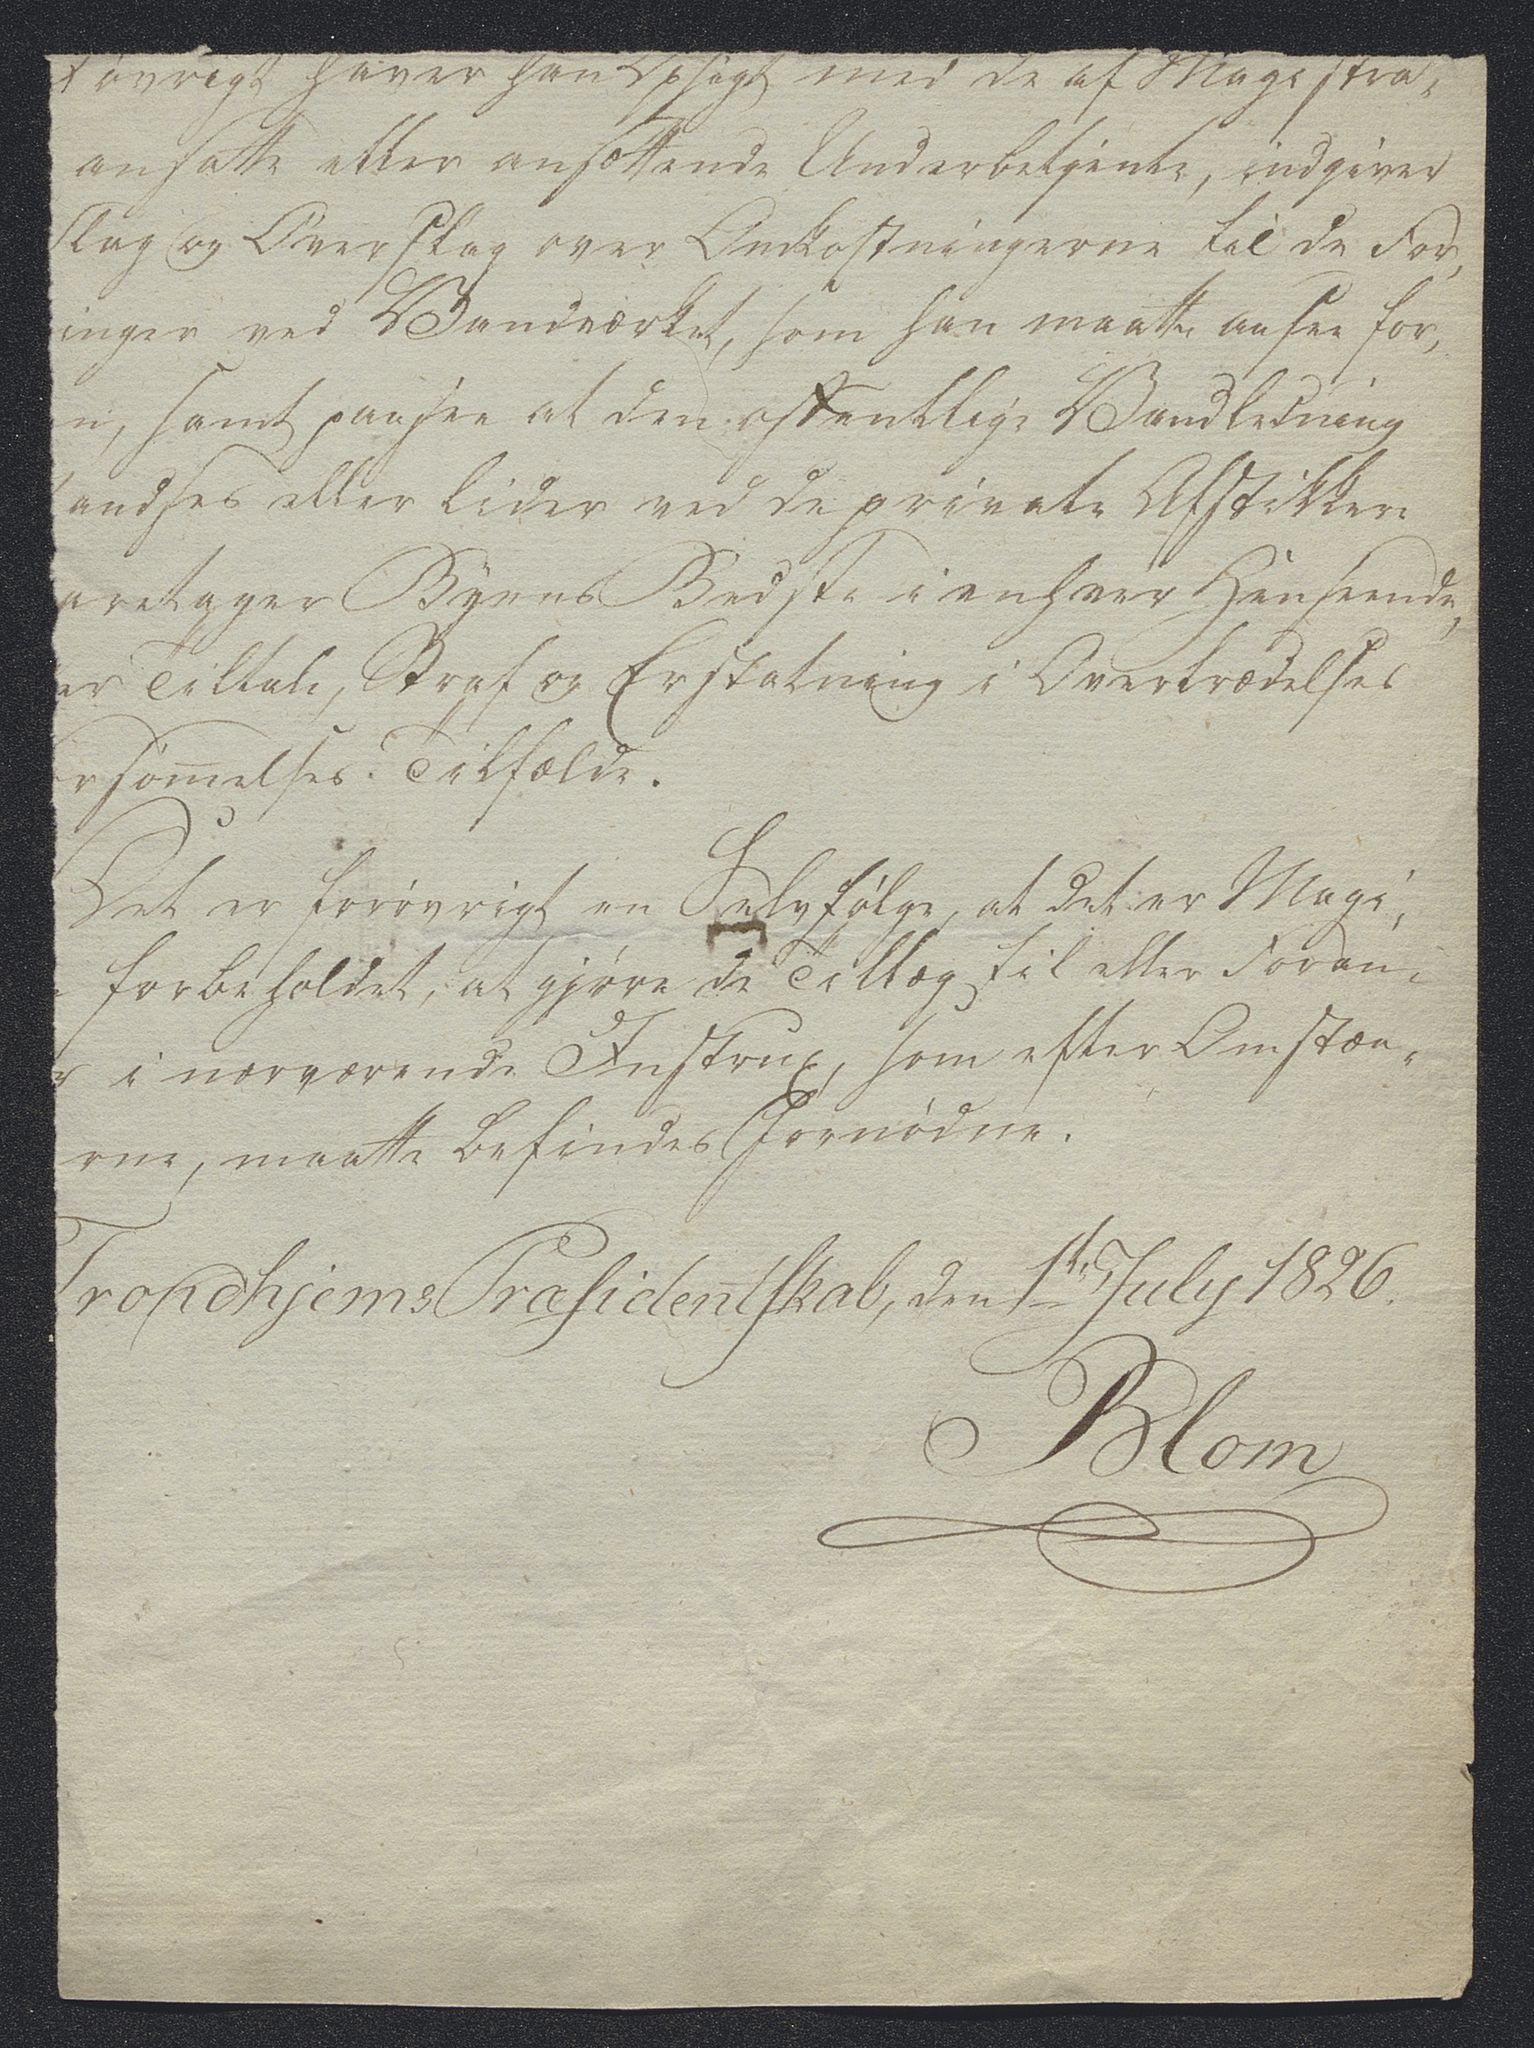 øvrigt haver han Opsigt med de af Magistra-
ansatte eller ansættende Underbetjente, indgiver
slag og Overslag over Omkostningerne til de For-
inger ved Vandværket, som han maatte ansee for-
n, samt paasee at den offentlige Vandledning
andses eller lider ved de private Afstikkere
aretager Byens Bedste i enhver Henseende,
er Tiltale, Straf og Erstatning i Overtrædelses
rsømelses Tilfælde.
Det er forøvrigt en Selvfølge, at det er Magi-
forbeholdet, at gjøre de Tillæg til eller Foran-
r i nærværende Instrux, som efter Omstæn-
rne, maatte befindes fornødne.
Trondhjems Præsidentskab, den 1te July 1826.
Blom